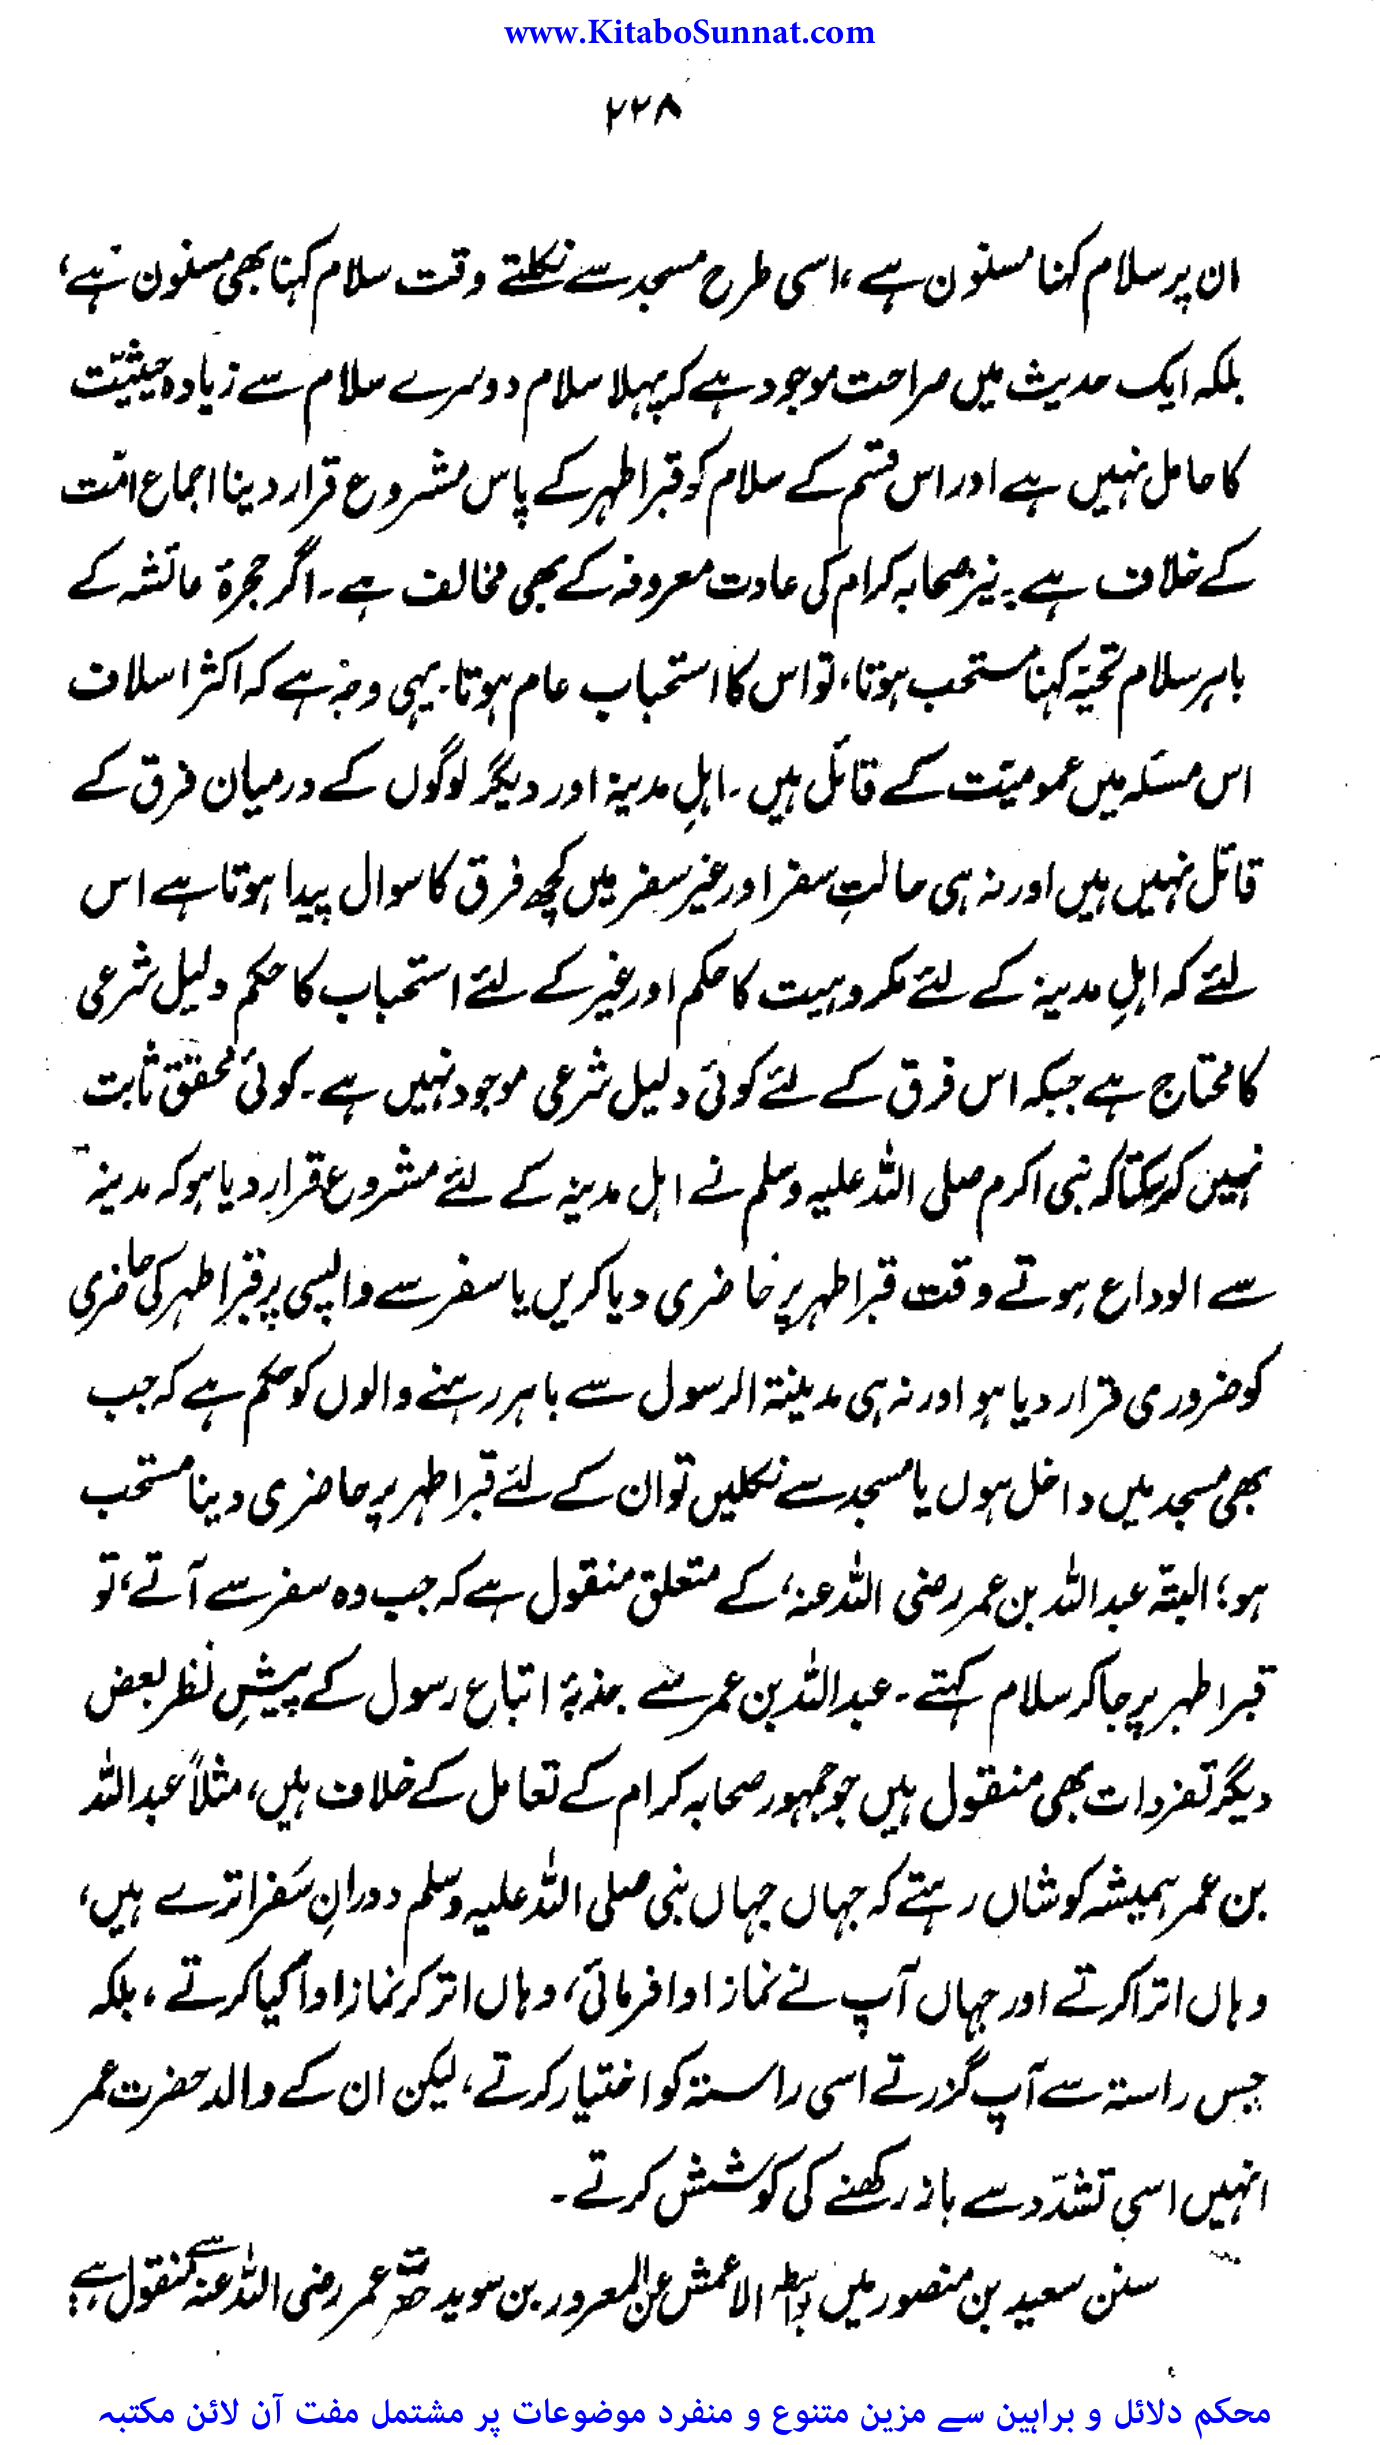 www.KitaboSunnat.com
۲۲۸
ان پر سلام کہنا مسنون ہے، اسی طرح مسجد سے نکلتے وقت سلام کہنا بھی مسنون ہے،
بلکہ ایک حدیث میں صراحت موجود ہے کہ پہلا سلام دوسرے سلام سے زیادہ حیثیّت
کا حامل نہیں ہے اور اس قسم کے سلام کو قبر اطہر کے پاس مشروع قرار دینا اجماع امّت
کے خلاف ہے۔ نیز صحابہ کرام کی عادت معروفہ کے بھی مخالف ہے۔ اگر حجرۃ عائشہ کے
باہر سلام تحیّہ کہنا مستحب ہوتا، تو اس کا استحباب عام ہوتا۔ یہی وجہ ہے کہ اکثر اسلاف
اس مسئلہ میں عمومیّت کے قائل ہیں۔ اہلِ مدینہ اور دیگر لوگوں کے درمیان فرق کے
قائل نہیں ہیں اور نہ ہی حالتِ سفر اور غیر سفر میں کچھ فرق کا سوال پیدا ہوتا ہے اس
لئے کہ اہلِ مدینہ کے لئے مکروہیت کا حکم اور غیر کے لئے استحباب کا حکم دلیل شرعی
کا محتاج ہے جبکہ اس فرق کے لئے کوئی دلیل شرعی موجود نہیں ہے۔ کوئی محقق ثابت
نہیں کر سکتا کہ نبی اکرم صلی اللہ علیہ وسلم نے اہل مدینہ کے لئے مشروع قرار دیا ہو کہ مدینہ
سے الوداع ہوتے وقت قبر اطہر پر حاضری دیا کریں یا سفر سے واپسی پر قبر اطہر کی حاضری
کو ضروری قرار دیا ہو اور نہ ہی مدینۃ الرسول سے باہر رہنے والوں کو حکم ہے کہ جب
بھی مسجد میں داخل ہوں یا مسجد سے نکلیں تو ان کے لئے قبر اطہر پر حاضری دینا مستحب
ہو؛ البتّہ عبداللہ بن عمر رضی اللہ عنہ، کے متعلق منقول ہے کہ جب وہ سفر سے آتے، تو
قبر اطہر پر جا کر سلام کہتے۔ عبداللہ بن عمر سے جذبۂ اتباع رسول کے پیشِ نظر بعض
دیگر تفردات بھی منقول ہیں جو جمہور صحابہ کرام کے تعامل کے خلاف ہیں، مثلاً عبداللہ
بن عمر ہمیشہ کوشاں رہتے کہ جہاں جہاں نبی صلی اللہ علیہ وسلم دورانِ سفر اترے ہیں،
وہاں اترا کرتے اور جہاں آپ نے نماز ادا فرمائی، وہاں اتر کر نماز ادا کیا کرتے، بلکہ
جس راستہ سے آپ گزرتے اسی راستہ کو اختیار کرتے، لیکن ان کے والد حضرت عمر
انہیں اسی تشدّد سے باز رکھنے کی کوشش کرتے۔
سنن سعید بن منصور میں بواسطہ الاعمش عن المعرور بن سوید حضرت عمر رضی اللہ عنہ سے منقول ہے؛
محکم دلائل و براہین سے مزین متنوع و منفرد موضوعات پر مشتمل مفت آن لائن مکتبہ